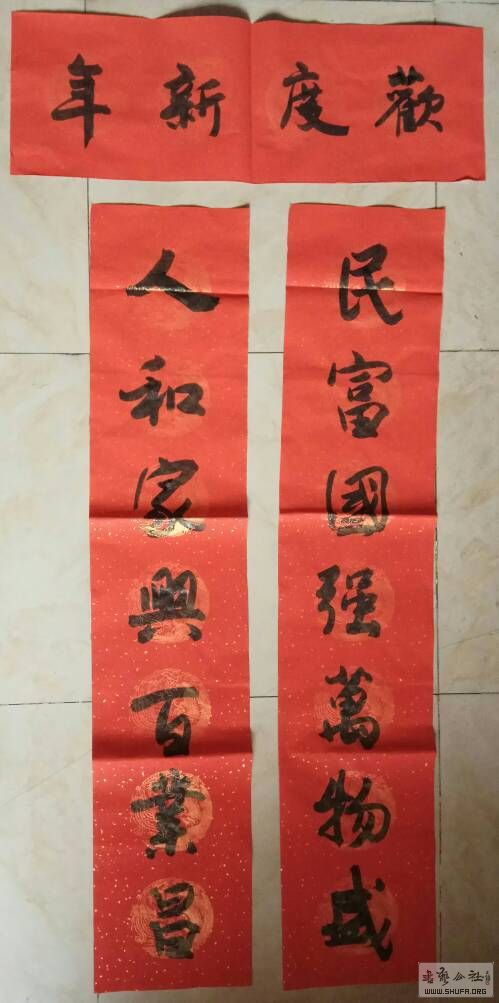 歡度新年
民富國强萬物盛
人和家興百業昌
WWW.SHUFA.ORG